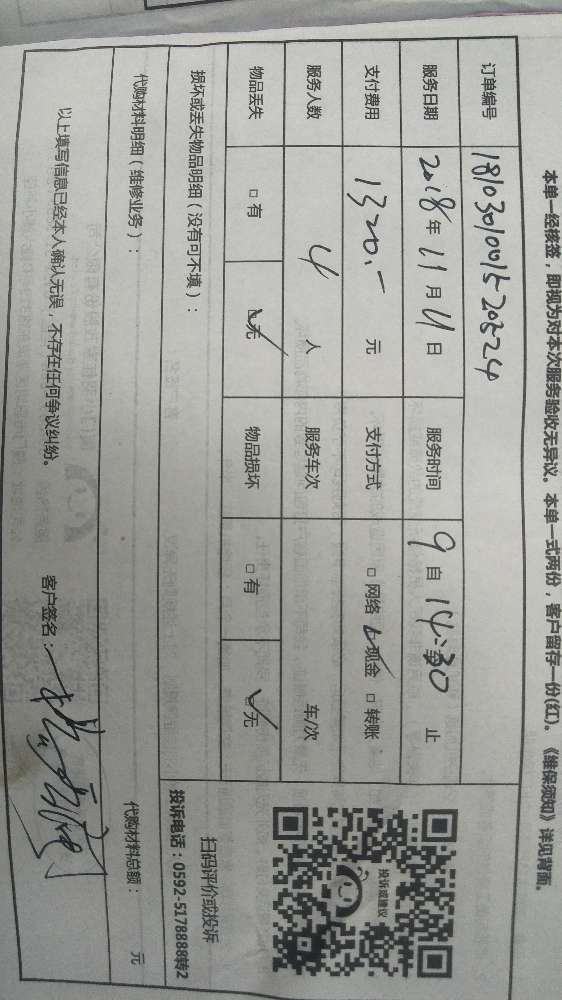 本单一经接签，即视为对本次服务验收无异议。本单一式两份，客户留存一份(红)。《维保须知》详见背面。
订单编号 181030100015203524
服务日期 2018年11月11日 服务时间 9 自 14:30 止
支付费用 1320.- 元 支付方式 □ 网络 ☑ 现金 □ 转账
服务人数 4 人 服务车次 车/次
物品丢失 □ 有 ☑ 无 物品损坏 □ 有 ☑ 无
损坏或丢失物品明细（没有可不填）：
投诉或建议
扫码评价或投诉
投诉电话：0592-5178888转2
代购材料明细（维修业务）：
代购材料总额： 元
以上填写信息已经本人确认无误，不存在任何争议纠纷。
客户签名：